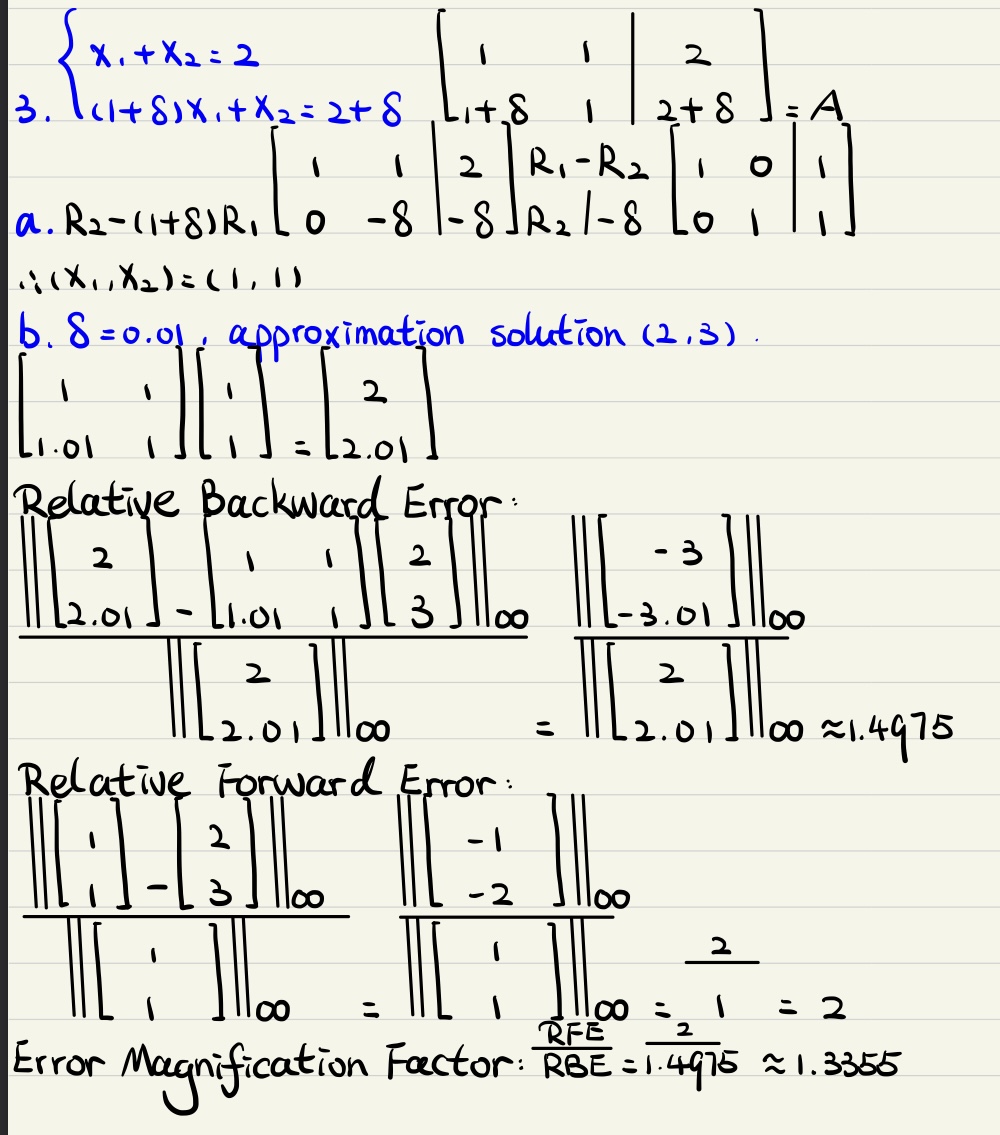 3. { x₁+x₂=2
(1+δ)x₁+x₂=2+δ [1 1 | 2; 1+δ 1 | 2+δ] = A
a. R₂-(1+δ)R₁ [1 1 | 2; 0 -δ | -δ] R₁-R₂ R₂/-δ [1 0 | 1; 0 1 | 1]
∴(x₁,x₂)=(1,1)
b. δ=0.01, approximation solution (2,3).
[1 1; 1.01 1][1; 1] = [2; 2.01]
Relative Backward Error:
‖[2; 2.01] - [1 1; 1.01 1][2; 3]‖∞ / ‖[2; 2.01]‖∞ = ‖[-3; -3.01]‖∞ / ‖[2; 2.01]‖∞ ≈1.4975
Relative Forward Error:
‖[1; 1] - [2; 3]‖∞ / ‖[1; 1]‖∞ = ‖[-1; -2]‖∞ / ‖[1; 1]‖∞ = 2/1 = 2
Error Magnification Factor: RFE/RBE = 2/1.4975 ≈1.3355